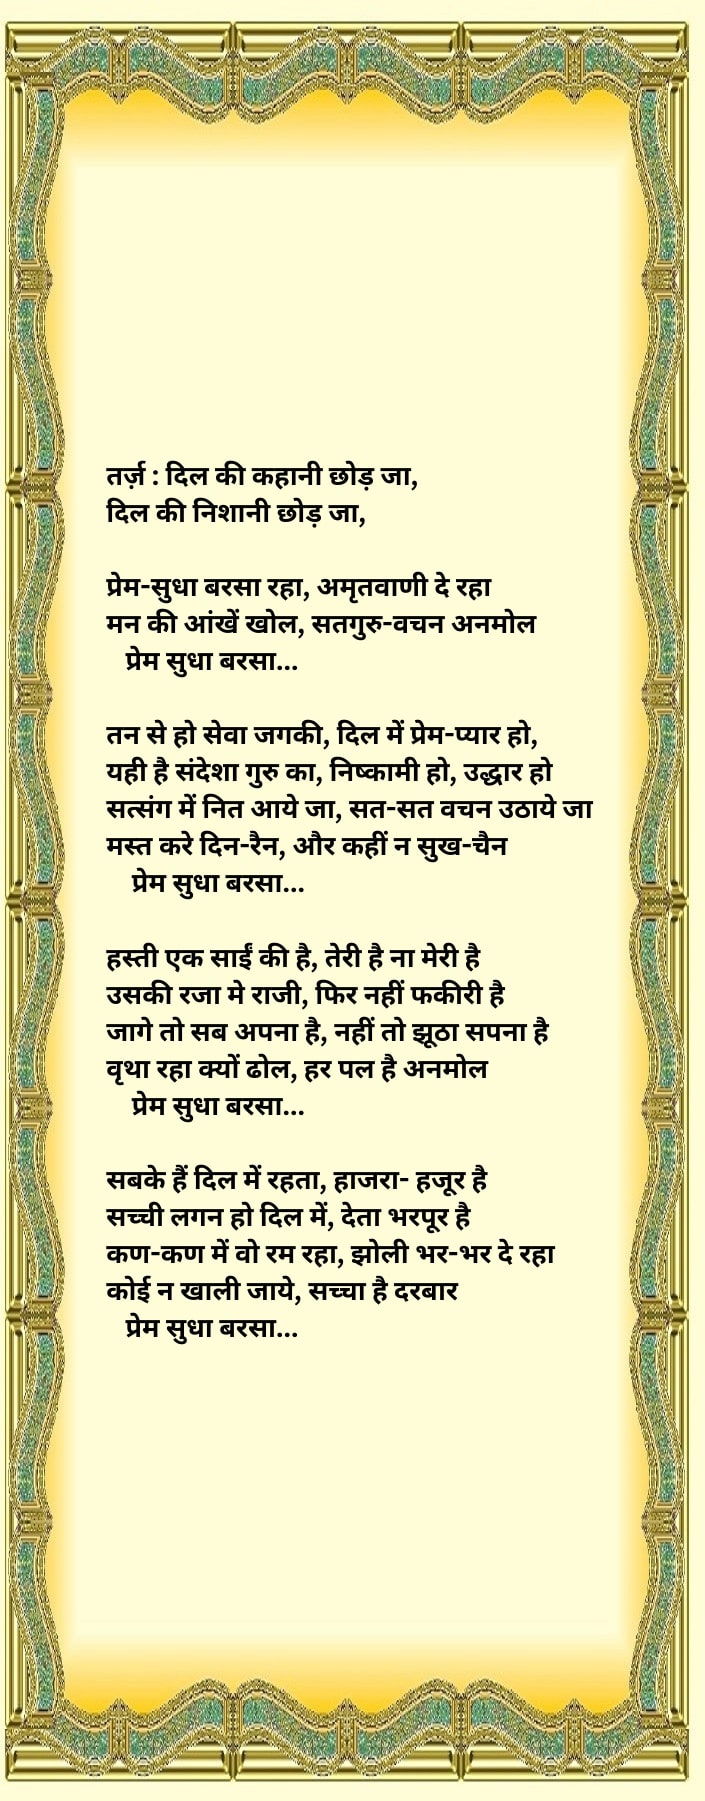 तर्ज़ : दिल की कहानी छोड़ जा,
दिल की निशानी छोड़ जा,
प्रेम-सुधा बरसा रहा, अमृतवाणी दे रहा
मन की आंखें खोल, सतगुरु-वचन अनमोल
प्रेम सुधा बरसा...
तन से हो सेवा जगकी, दिल में प्रेम-प्यार हो,
यही है संदेशा गुरु का, निष्कामी हो, उद्धार हो
सत्संग में नित आये जा, सत-सत वचन उठाये जा
मस्त करे दिन-रैन, और कहीं न सुख-चैन
प्रेम सुधा बरसा...
हस्ती एक साईं की है, तेरी है ना मेरी है
उसकी रजा मे राजी, फिर नहीं फकीरी है
जागे तो सब अपना है, नहीं तो झूठा सपना है
वृथा रहा क्यों ढोल, हर पल है अनमोल
प्रेम सुधा बरसा...
सबके हैं दिल में रहता, हाजरा- हजूर है
सच्ची लगन हो दिल में, देता भरपूर है
कण-कण में वो रम रहा, झोली भर-भर दे रहा
कोई न खाली जाये, सच्चा है दरबार
प्रेम सुधा बरसा...